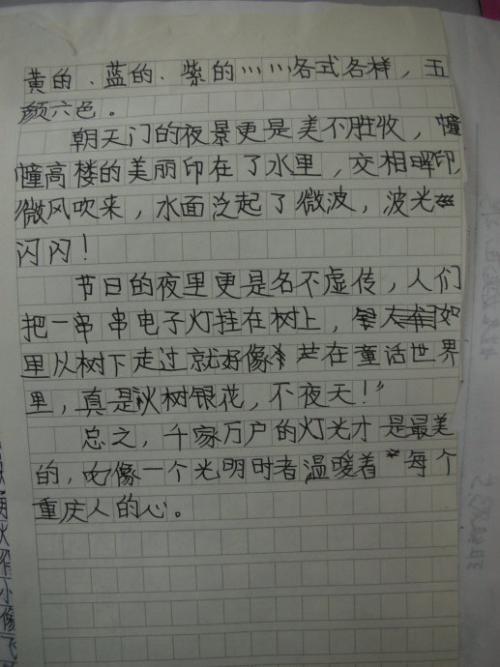 黄的、蓝的、紫的……各式各样，五
颜六色。
朝天门的夜景更是美不胜收，幢
幢高楼的美丽印在了水里，交相晖印，
微风吹来，水面泛起了微波，波光
闪闪！
节日的夜里更是名不虚传，人们
把一串串电子灯挂在树上，如
里从树下走过就好像在童话世界
里，真是火树银花，不夜天！”
总之，千家万户的灯光才是最美
的，像一个光明时者温暖着每个
重庆人的心。